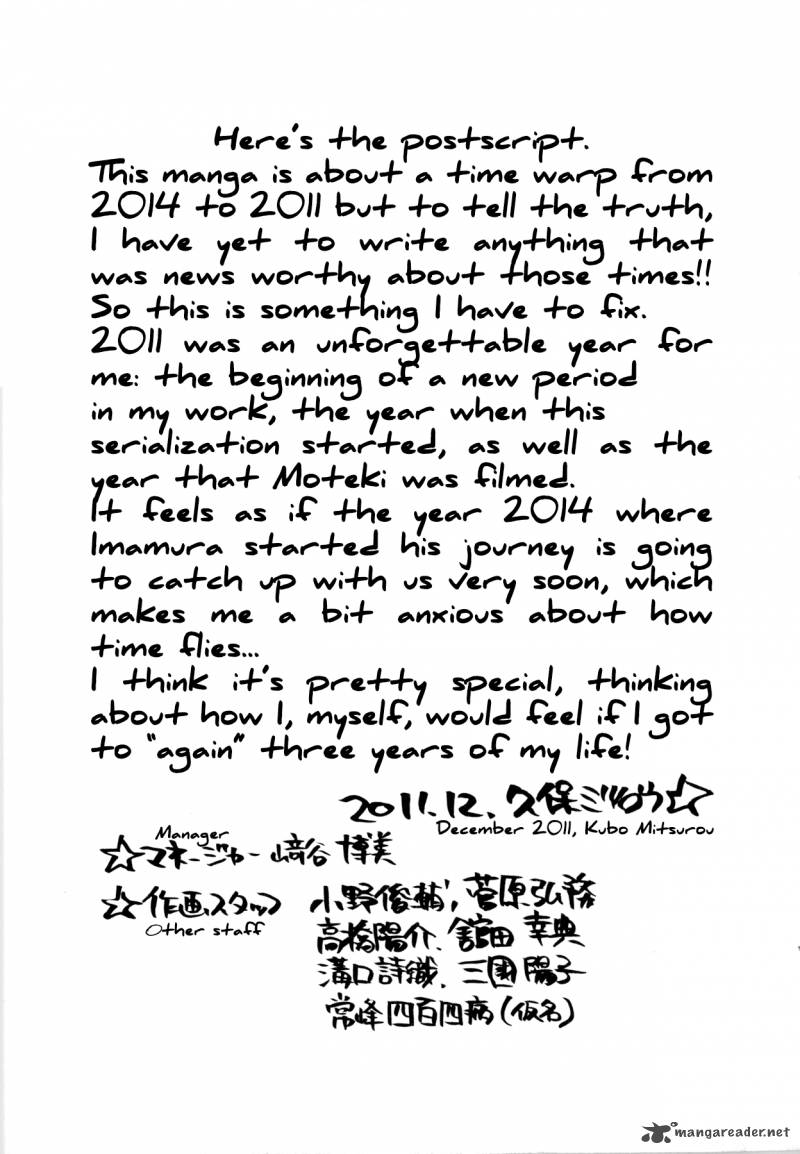 Here's the postscript.
This manga is about a time warp from
2014 to 2011 but to tell the truth,
I have yet to write anything that
was news worthy about those times!!
So this is something I have to fix.
2011 was an unforgettable year for
me: the beginning of a new period
in my work, the year when this
serialization started, as well as the
year that Moteki was filmed.
It feels as if the year 2014 where
Imamura started his journey is going
to catch up with us very soon, which
makes me a bit anxious about how
time flies...
I think it's pretty special, thinking
about how I, myself, would feel if I got
to "again" three years of my life!
2011.12. 久保ミツロウ☆
December 2011, Kubo Mitsurou
Manager
☆マネージャー 﨑谷 博美
☆作画スタッフ 小野俊輔, 菅原弘務
Other staff
高橋陽介、舘田幸典
溝口詩織、三國陽子
常峰四百四病(仮名)
mangareader.net